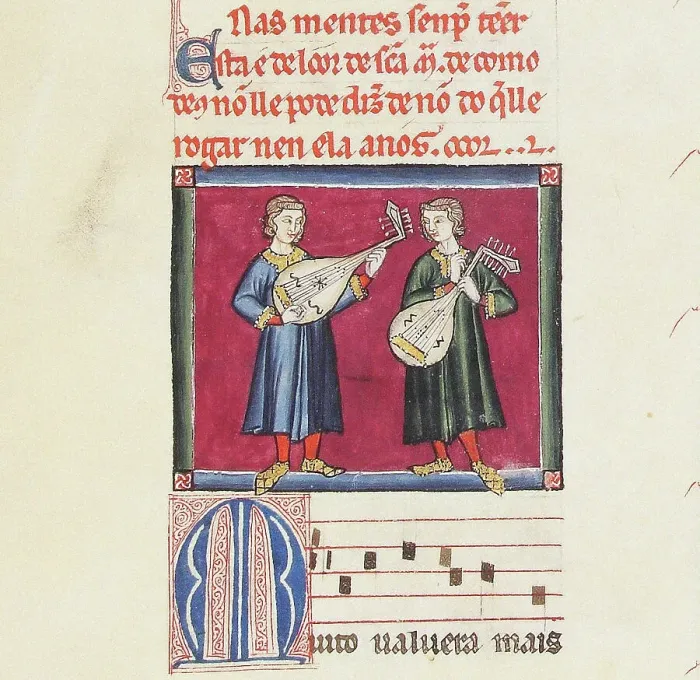 nas mentes senp̄ tẽer
Esta é de loor de scã m̃. de como
deꝯ nõ lle pode diz̃ de nõ do q̃ lle
rogar nen ela a nos.
Muito ualuera mais